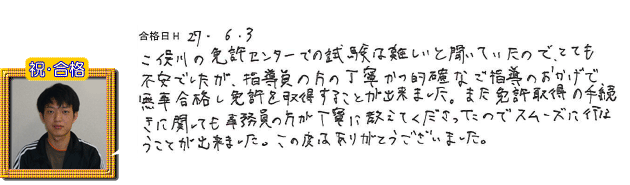 合格日 H 27. 6. 3
二俣川の免許センターでの試験は難しいと聞いていたので、とても
不安でしたが、指導員の方の丁寧かつ的確なご指導のおかげで
無事合格し免許を取得することが出来ました。また免許取得の手続
きに関しても事務員の方が丁寧に教えてくださったのでスムーズに行
うことが出来ました。この度はありがとうございました。
祝・合格